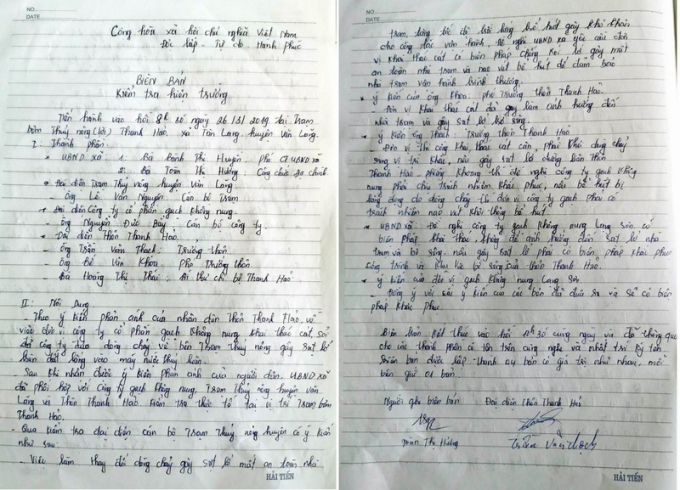 NO.
DATE
Cộng hòa xã hội chỉ nghĩa Việt Nam
Độc lập - Tự do Hạnh phúc
BIÊN BẢN
Kiểm tra hiện trường
Tiến hành vào hồi 8h 20 ngày 26/3/2019 tại Trạm
bơm Thuỷ nông Thanh Hảo, xã Tân Lang huyện Văn Lãng.
I. Thành phần:
* UBND xã 1. Bà Hoàng Thị Huyện: phó CT UBND xã
2. Bà Đoàn Thị Hường: Công chức địa chính
* Đại diện Trạm Thuỷ nông huyện Văn Lãng
- Ông Lê Văn Nguyên Cán bộ trạm
* Đại diện Công ty cổ phần gạch không nung.
- Ông Nguyễn Đức Bảy Cán bộ công ty.
* Đại diện thôn Thanh Hảo
- Ông Trần Văn Thạch - Trưởng thôn
- Ông Bế Văn Khoa - phó Trưởng thôn.
- Bà Hoàng Thị Thái: Bí thư chi bộ Thanh Hảo
II: Nội dung
- Theo ý kiến phản ánh của nhân dân Thôn Thanh Hảo, về
việc đơn vị công ty cổ phần gạch không nung khai thác cát sỏi
đã công ty dòng chảy về bên Trạm Thuỷ nông gây sạt lở
Sau khi nhận được ý kiến phản ánh của người dân, UBND xã
đã phối hợp với Công ty gạch không nung, Trạm Thuỷ nông huyện Văn
Lãng và Thôn Thanh Hảo kiểm tra thực tế tại vị trí Trạm bơm
Thanh Hảo.
- Qua kiểm tra đại diện cán bộ Trạm Thuỷ nông huyện có ý kiến
như sau:
- Việc làm thay đổi dòng chảy gây sạt lở mất an toàn nhà
HẢI TIẾN
NO.
DATE
trạm, luồng bể bị bồi lắng bể hút gây khó khăn
cho công tác vận hành. Đề nghị UBND xã yêu cầu đơn
vị khai thác cát có biện pháp chống xói lở gây mất
an toàn nhà trạm và nạo vét bể hút để đảm bảo
nhà trạm vận hành bình thường.
* ý kiến của ông Khoa: phó Trưởng thôn Thanh Hảo.
- Đơn vị khai thác cát đã gây làm ảnh hưởng đến
nhà trạm và gây sạt lở bờ sông.
* ý kiến ông Thạch: Trưởng thôn Thanh Hảo
- Đơn vị thi công khai thác cát cần phải khơi dòng chảy
đúng vị trí khai, nếu gây sạt lở đường liên thôn
Thanh Hảo - thì đề nghị công ty gạch không
nung phải chịu trách nhiệm khắc phục, nếu bể hút bị
lắng đọng do dòng chảy thì đơn vị công ty gạch phải có
trách nhiệm nạo vét khơi thông bể hút.
* UBND xã: Đề nghị công ty gạch không nung Lạng Sơn có
biện pháp khai thác không để ảnh hưởng đến sạt lở nhà
trạm và bờ sông. nếu gây sạt lở phải có biện pháp khắc phục
công trình và khu bờ sông của thôn Thanh Hảo.
* ý kiến của đơn vị gạch không nung Lạng Sơn
- Đồng ý với các ý kiến của các bên đã đưa ra và sẽ có biện
pháp khắc phục.
Biên bản kết thúc vào hồi 30 cùng ngày và đã thông qua
cho các thành phần có tên trên cùng nghe và nhất trí ký tên
biên bản được lập thành 04 bản có giá trị như nhau, mỗi
bên giữ 01 bản.
Người ghi biên bản Đại diện thôn Thanh Hảo
Đoàn Thị Hường Trần Văn Thạch
HẢI TIẾN